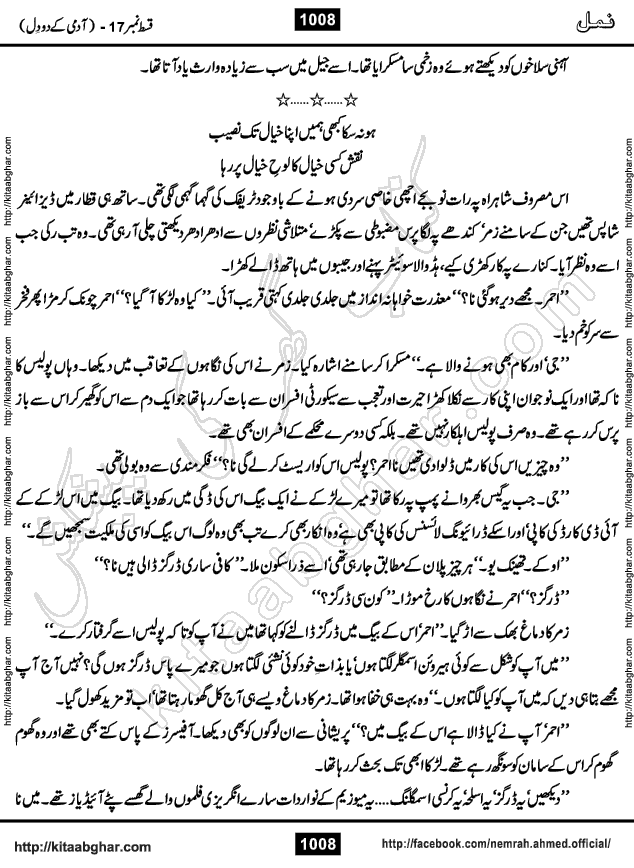 نمل
1008
قسط نمبر 17 - ( آدمی کے دو دِل )
آہنی سلاخوں کو دیکھتے ہوئے وہ زخمی سا مسکرایا تھا۔ اسے جیل میں سب سے زیادہ وارث یاد آتا تھا۔
☆......☆......☆
ہو نہ سکا کبھی ہمیں اپنا خیال تک نصیب
نقش کسی خیال کا لوح خیال پر رہا
اس مصروف شاہراہ پہ رات نو بجے اچھی خاصی سردی ہونے کے باوجود ٹریفک کی گہما گہمی لگی تھی۔ ساتھ ہی قطار میں ڈیزائنر
شاپس تھیں جن کے سامنے زمر' کندھے پہ لگا پرس مضبوطی سے پکڑے' متلاشی نظروں سے ادھر ادھر دیکھتی چلی آ رہی تھی۔ وہ تب رکی جب
اسے وہ نظر آیا۔ کنارے پہ کار کھڑی کیے، ہڈ والا سوئیٹر پہنے اور جیبوں میں ہاتھ ڈالے کھڑا۔
’’احمر۔ مجھے دیر ہو گئی نا؟‘‘ معذرت خواہانہ انداز میں جلدی جلدی کہتی قریب آئی۔ ’’کیا وہ لڑکا آ گیا؟‘‘ احمر چونک کر مڑا پھر فخر
سے سر کو خم دیا۔
’’جی' اور کام بھی ہونے والا ہے۔‘‘ مسکرا کر سامنے اشارہ کیا۔ زمر نے اس کی نگاہوں کے تعاقب میں دیکھا۔ وہاں پولیس کا
ناکہ تھا اور ایک نوجوان اپنی کار سے نکلا کھڑا حیرت اور تعجب سے سیکورٹی افسران سے بات کر رہا تھا جو ایک دم سے اس کو گھیر کر اس سے باز
پرس کر رہے تھے۔ وہ صرف پولیس اہلکار نہیں تھے۔ بلکہ کسی دوسرے محکمے کے افسران بھی تھے۔
’’وہ چیزیں اس کی کار میں ڈلوا دی تھیں نا احمر؟ پولیس اس کو اریسٹ کر لے گی نا؟‘‘ فکر مندی سے وہ بولی تھی۔
’’جی۔ جب یہ گیس بھروانے پمپ پہ رکا تھا تو میرے لڑکے نے ایک بیگ اس کی ڈگی میں رکھ دیا تھا۔ بیگ میں اس لڑکے کے
آئی ڈی کارڈ کی کاپی' اور اسکے ڈرائیونگ لائسنس کی کاپی بھی ہے' وہ انکار بھی کرے تب بھی وہ لوگ اس بیگ کو اسی کی ملکیت سمجھیں گے۔‘‘
’’اوکے۔ تھینک یو۔‘‘ ہر چیز پلان کے مطابق جا رہی تھی' اسے ذرا سکون ملا۔ ’’کافی ساری ڈرگز ڈالی ہیں نا؟‘‘
’’ڈرگز؟‘‘ احمر نے نگاہوں کا رخ موڑا۔ ’’کون سی ڈرگز؟‘‘
زمر کا دماغ بھک سے اڑ گیا۔ ’’احمر' اس کے بیگ میں ڈرگز ڈالنے کو کہا تھا میں نے آپ کو تاکہ پولیس اسے گرفتار کرے۔‘‘
’’میں آپ کو شکل سے کوئی ہیروئن اسمگلر لگتا ہوں' یا بذاتِ خود کوئی نشئی لگتا ہوں جو میرے پاس ڈرگز ہوں گی؟ نہیں آج آپ
مجھے بتا ہی دیں کہ میں آپ کو کیا لگتا ہوں۔‘‘ وہ بہت ہی خفا ہوا تھا۔ زمر کا دماغ ویسے ہی آج کل گھوما رہتا تھا' اب تو مزید کھول گیا۔
’’احمر' آپ نے کیا ڈالا ہے اس کے بیگ میں؟‘‘ پریشانی سے ان لوگوں کو بھی دیکھا۔ آفیسرز کے پاس کتے بھی تھے اور وہ گھوم
گھوم کر اس کے سامان کو سونگھ رہے تھے۔ لڑکا ابھی تک بحث کر رہا تھا۔
’’دیکھیں' یہ ڈرگز' یہ اسلحہ' یہ کرنسی اسمگلنگ.... یہ میوزیم کے نوادرات سارے انگریزی فلموں والے گھسے پٹے آئیڈیاز تھے۔ میں نا
http://kitaabghar.com
1008
http://facebook.com/nemrah.ahmed.official/
http://kitaabghar.com
http://kitaabghar.com
http://kitaabghar.com
http://kitaabghar.com
http://kitaabghar.com
http://kitaabghar.com
http://kitaabghar.com
http://kitaabghar.com
http://kitaabghar.com
http://kitaabghar.com
http://kitaabghar.com
http://kitaabghar.com
کتاب گھر کی پیشکش
kitaabghar.com